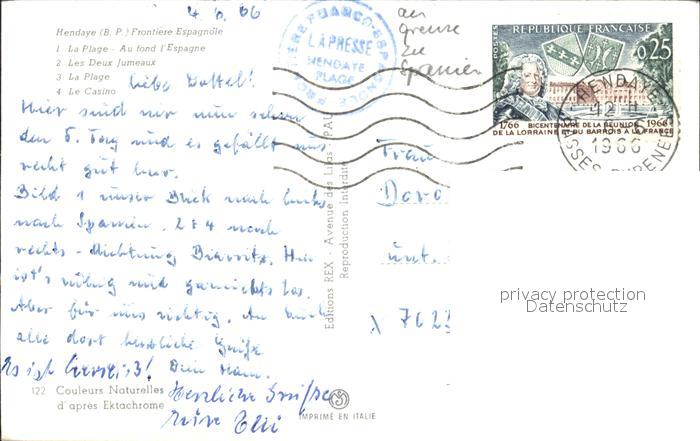 4. 6. 66
Hendaye (B. P.) Frontière Espagnole
1 La Plage - Au fond l'Espagne
2 Les Deux Jumeaux
3 La Plage
4 Le Casino
FRONTIERE FRANCO-ESPAGNOLE
LA PRESSE
HENDAYE
PLAGE
an
Grenze
zu
Spanien
POSTES
REPUBLIQUE FRANÇAISE
0,25
1766 BICENTENAIRE DE LA REUNION 1966
DE LA LORRAINE ET DU BARROIS A LA FRANCE
HENDAYE
12 H
1966
BASSES-PYRENEES
Liebe
Hier sind wir nun schon
den 5. Tag und es gefällt uns
recht gut hier.
Bild 1 unser Blick nach links
nach Spanien. 2 & 4 nach
rechts - Richtung Biarritz. Hier
ist's ruhig und garnichts los.
Aber für uns richtig. An Euch
alle dort herzliche Grüße
Dein
Herzliche Grüße
Frau
Doro
unt.
762
Editions REX - Avenue des Lilas - PAU
Reproduction Interdite
122 Couleurs Naturelles
d'après Ektachrome
IMPRIMÉ EN ITALIE
privacy protection
Datenschutz